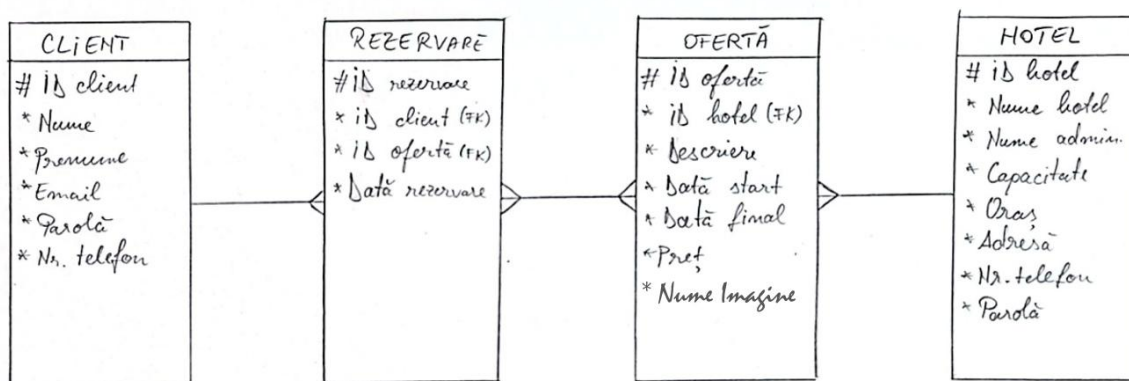 CLIENT
# ID client
* Nume
* Prenume
* Email
* Parolă
* Nr. telefon
REZERVARE
# ID rezervare
* ID client (FK)
* ID ofertă (FK)
* Dată rezervare
OFERTĂ
# ID ofertă
* ID hotel (FK)
* Descriere
* Dată start
* Dată final
* Preț
* Nume Imagine
HOTEL
# ID hotel
* Nume hotel
* Nume admin.
* Capacitate
* Oraș
* Adresă
* Nr. telefon
* Parolă